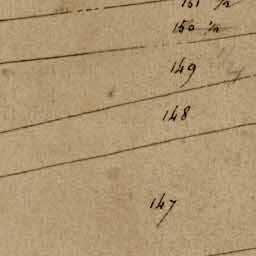 151 1/2
150 1/2
149
148
147